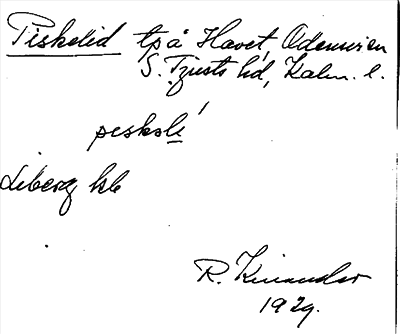 Piskelid tp å Havet, Odensvi sn
S. Tjusts hd, Kalm. l.
peskolí
Liberg kb
R. Kinander
1929.